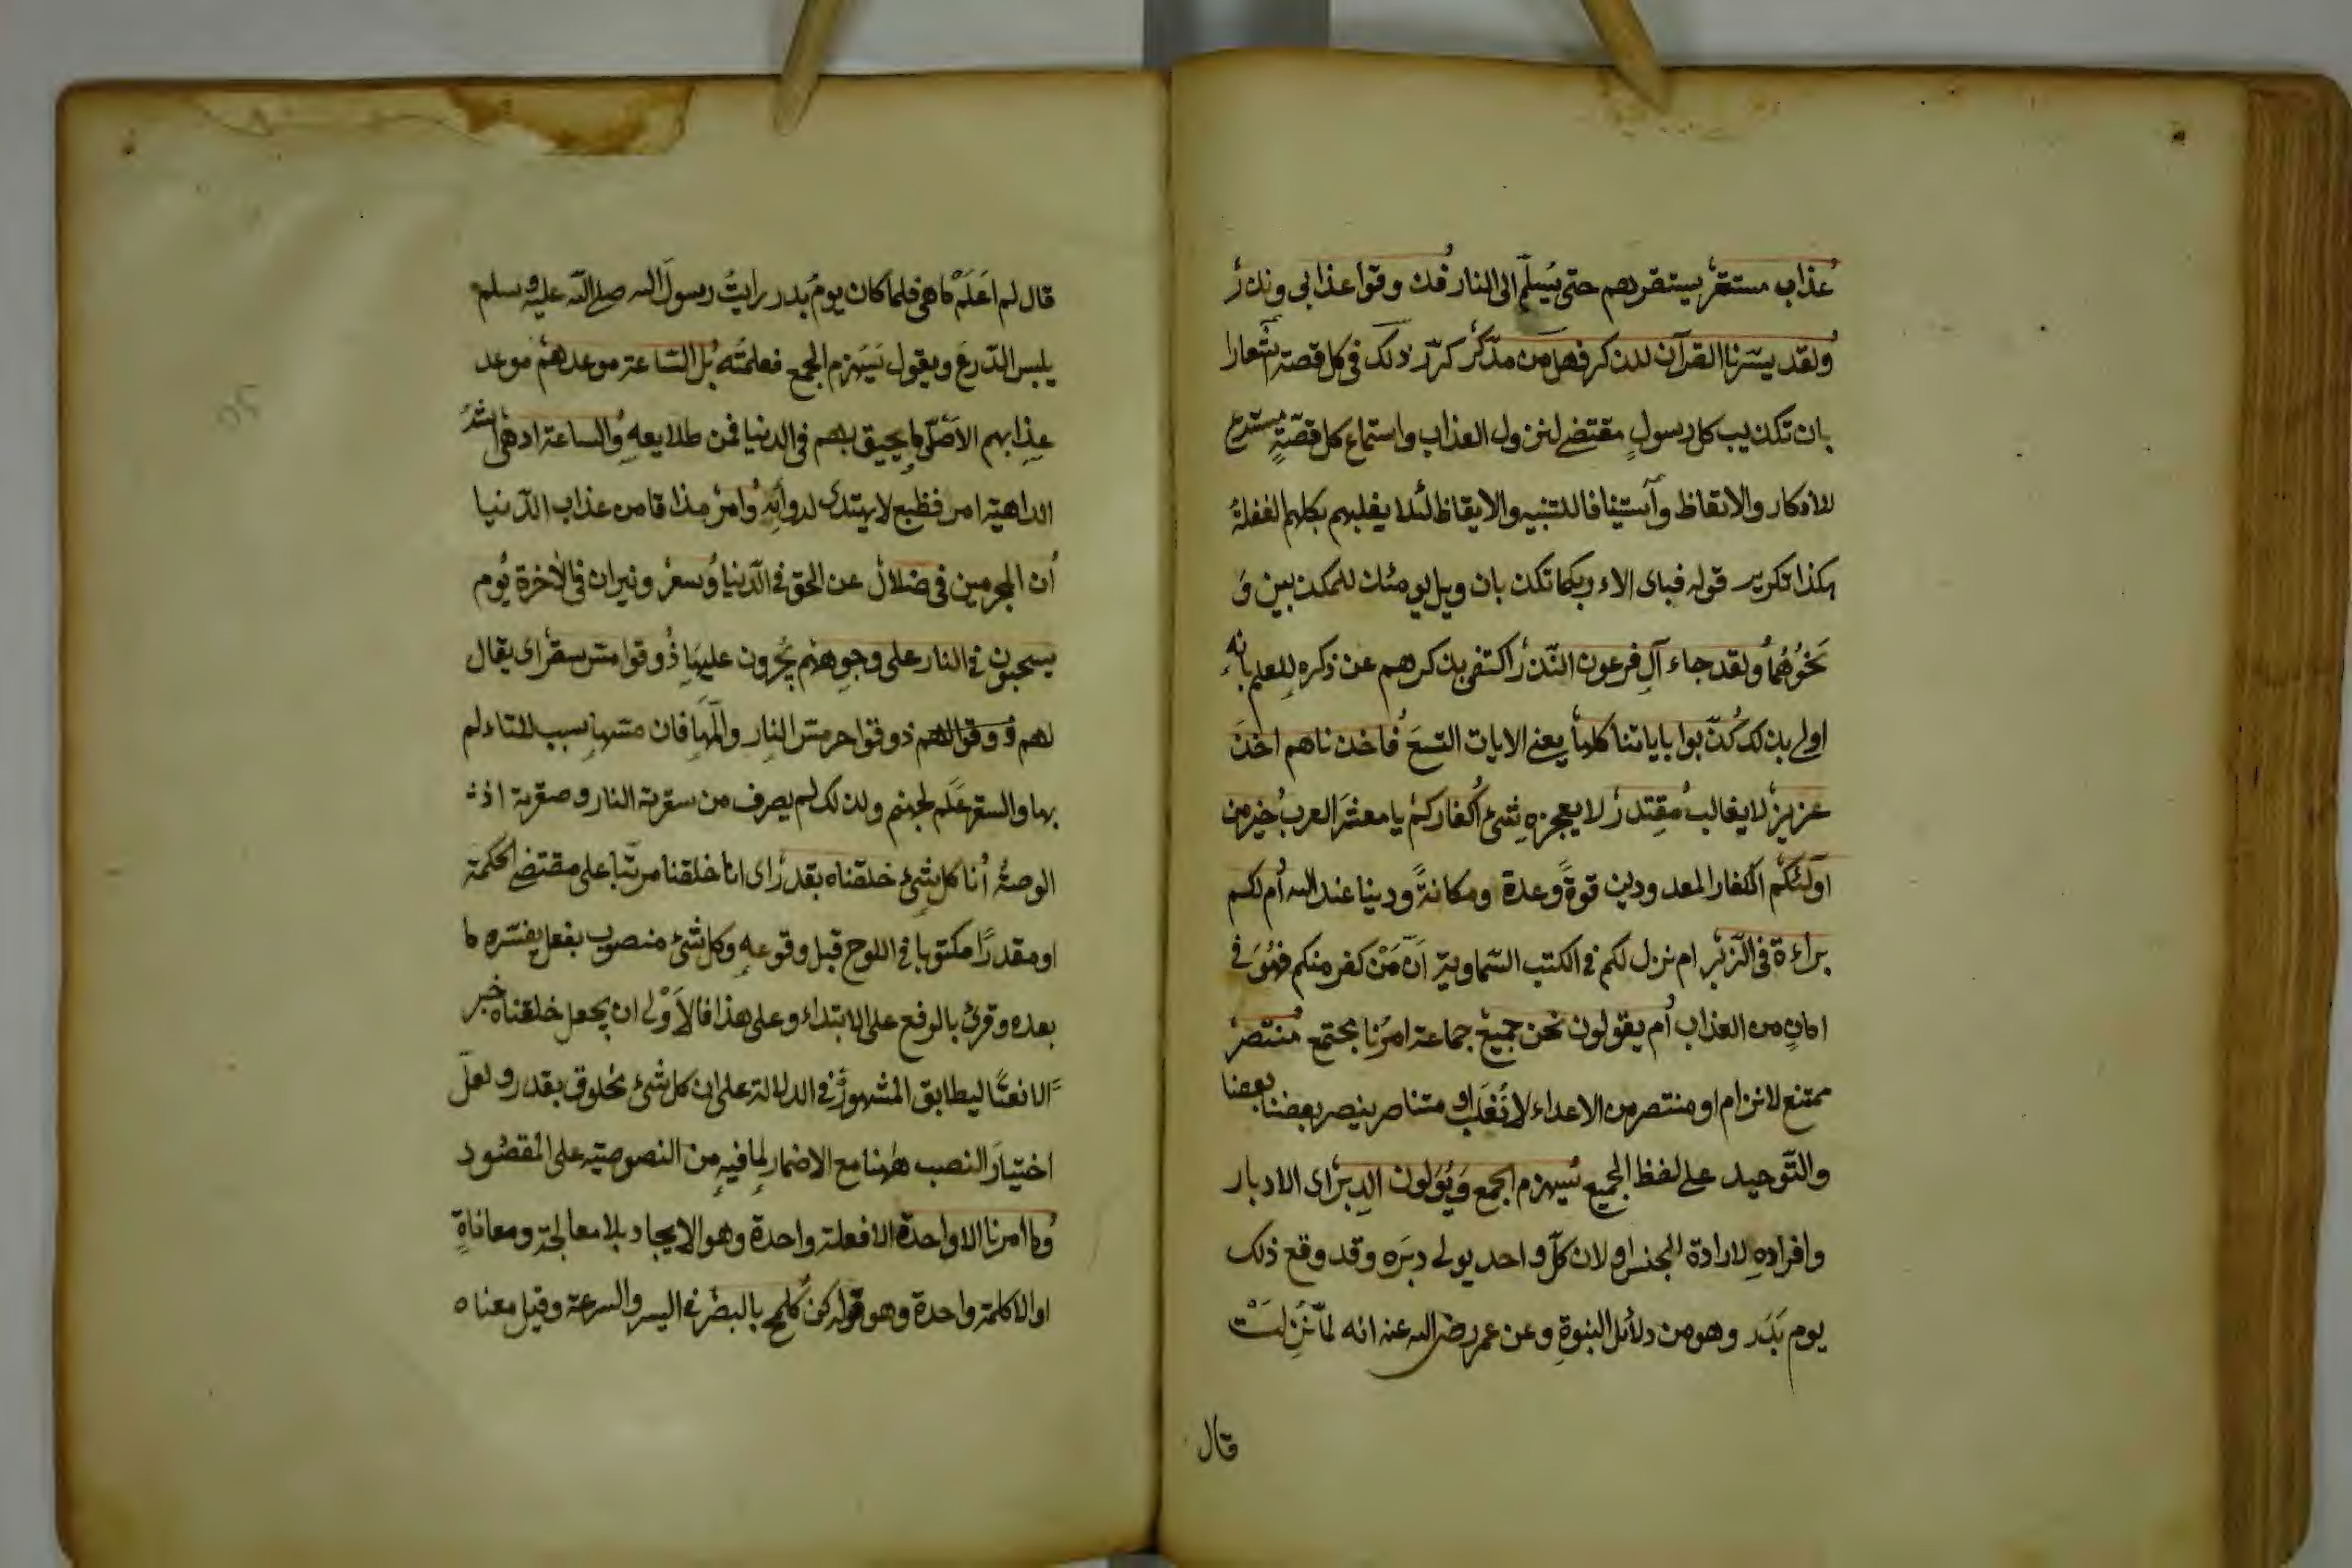 عذاب مستقر يستقر بهم حتى يسلم الى النار فذ وقوا عذابى ونذر
ولقد يسرنا القرآن للذكر فهل من مدّكر كرّر ذلك فى كل قصة اشعارا
بان تكذيب كل رسولٍ مقتض لنزول العذاب واستماع كل قصّةٍ مستدع
للادكار والاتعاظ وآستينافا للتنبيه والايقاظ لئلا يغلبهم بكلهم الغفلةُ
هكذا تكرير قوله فباى الاء ربكما تكذبان ويل يومئذ للمكذبين وَ
نَحْوُهُمَا ولقد جاء آل فرعون النّذر اكتفى بذكرهم عن ذكره للعلم بانه
اولى بذلك كذّبوا باياتنا كلها يعنى الايات التسعَ فاخذناهم اخذَ
عزيزٍ لا يغالب مُقتدر لا يعجزه شئ أكفاركم يا معشرَ العرب خير من
اولئكم الكفار المعدودين قوةً وعدة ومكانةً ودينا عند الله أم لكم
براءة فى الزبر ام نزل لكم فى الكتب السّماويّة اَنّ مَنْ كفر منكم فهُوَ فى
امانٍ من العذاب أم يقولون نحن جميع جماعة امرُنا مجتمع مُنتصر
ممتنع لانزام او منتصر من الاعداء لا تُغلَب او متناصر ينصر بعضنا بعضنا
والتّوحيد على لفظ الجميع سيهزم الجمع وَيُوَلون الدبر اى الادبار
وافراده لارادة الجنس او لان كلّ واحد يولى دبرَه وقد وقع ذلك
يوم بَدر وهو من دلائل النبوةِ وعن عمر رضى الله عنه انه لمّا نُزِلَتْ
قال
قال لم اَعلَمْ ما هى فلما كان يومُ بدر رايتُ رسولَ الله صلى الله عليه وسلم
يلبس الدّرعَ ويقول سَيهزم الجمع فعلمتُه بل السّاعة موعدهم موعد
عذابهم الاَصلى وما يحيق بهم فى الدنيا فمن طلايعهِ والساعة ادهى اشدُّ
الداهية امر فظيع لا يهتدى لدوائه وامرّ مذاقا من عذاب الدّنيا
أن المجرمين فى ضلال عن الحق فى الدّنيا وُسعر ونيران فى الأخرة يُوم
يسحبون فى النار على وجوههم يجُرون عليها ذُوقوا مسّ سقر اى يقال
لهم ذوقوا حرمسّ النار والمَها فان مسّها سبب للتاءلم
بها والسقر عَلَم لجهنم ولذلك لم يصرف من سقرته النار وصقرته اذا
الوصتُه أنا كل شئ خلقناه بقدر اى انا خلقنا مرتّبا على مقتضى الحكمة
او مقدرًا مكتوبا فى اللوح قبل وقوعه وكل شئ منصوب بفعل يفسّره ما
بعده وقرئ بالرفع على الابتداء وعلى هذا فالاَوْلى ان يجعل خلقناه خبر
الا نعتًا ليطابق المشهورُ فى الدلالة على ان كل شئ مخلوق بقدر ولعلّ
اختيارَ النصب ههنا مع الاضمار لما فيه من النصوصيّة على المقصُود
وُما امرنا الا واحدة الا فعلة واحدة وهو الايجاد بلا معالجة ومعاناةٍ
او الا كلمة واحدة وهو قوله كن كلمح بالبصر فى اليسر والسرعة وقيل معناه